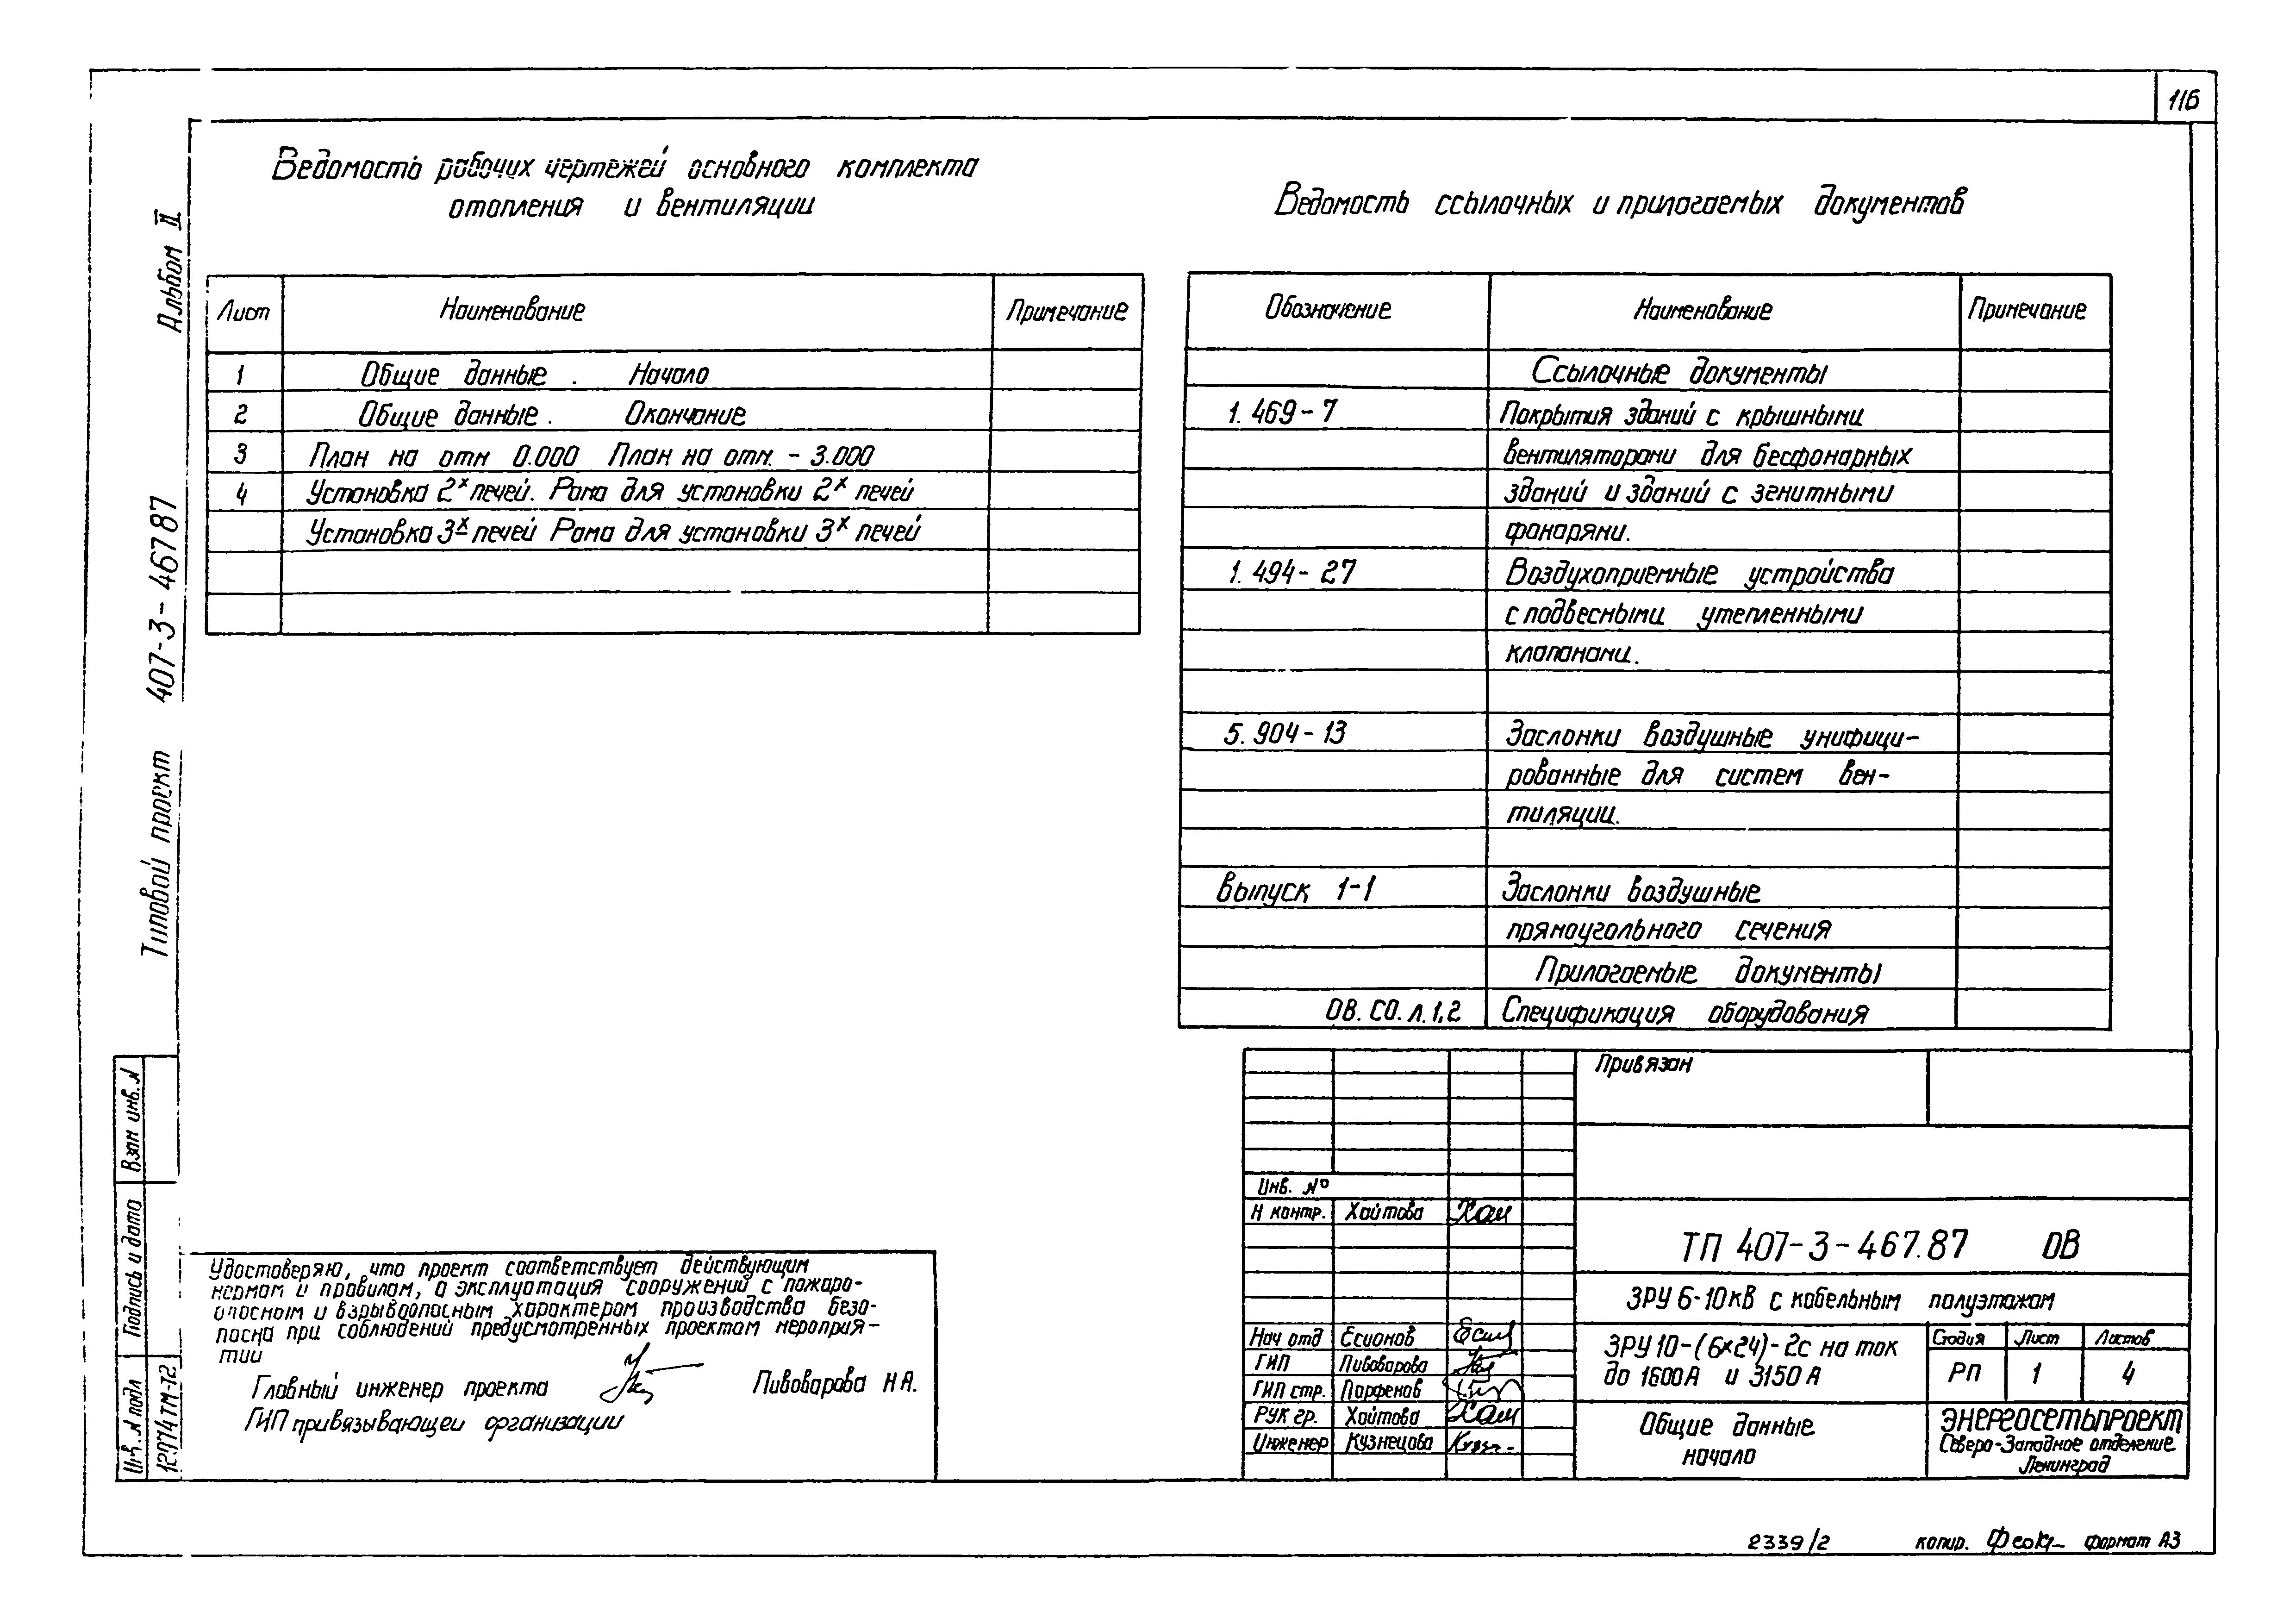 116
Альбом II
Типовой проект 407-3-467 87
Ведомость рабочих чертежей основного комплекта
отопления и вентиляции
Лист Наименование Примечание
1 Общие данные. Начало
2 Общие данные. Окончание
3 План на отм 0.000 План на отм. - 3.000
4 Установка 2х печей. Рама для установки 2х печей
Установка 3х печей Рама для установки 3х печей
Ведомость ссылочных и прилагаемых документов
Обозначение Наименование Примечание
Ссылочные документы
1.469-7 Покрытия зданий с крышными
вентиляторами для бесфонарных
зданий и зданий с зенитными
фонарями.
1.494-27 Воздухоприемные устройства
с подвесными утепленными
клапанами.
5.904-13 Заслонки воздушные унифици-
рованные для систем вен-
тиляции.
Выпуск 1-1 Заслонки воздушные
прямоугольного сечения
Прилагаемые документы
ОВ.СО.л.1,2 Спецификация оборудования
Взам инв. N
Подпись и дата
Инв. N подл
12974тм-т2
Удостоверяю, что проект соответствует действующим
нормам и правилам, а эксплуатация сооружений с пожаро-
опасным и взрывоопасным характером производства безо-
пасна при соблюдений предусмотренных проектом мероприя-
тии
Главный инженер проекта Пивоварова Н А.
ГИП привязывающей организации
Привязан
Инв. №
Н контр. Хаитова
ТП 407-3-467.87 ОВ
ЗРУ 6-10кВ с кабельным полуэтажом
Нач отд Есионов
ГИП Пивоварова
ГИП стр. Парфенов
Рук гр. Хаитова
Инженер Кузнецова
ЗРУ 10-(6×24)-2с на ток
до 1600А и 3150А
Стадия Лист Листов
РП 1 4
Общие данные
начало
ЭНЕРГОСЕТЬПРОЕКТ
Северо-Западное отделение
Ленинград
2339/2 копир. Феок формат А3